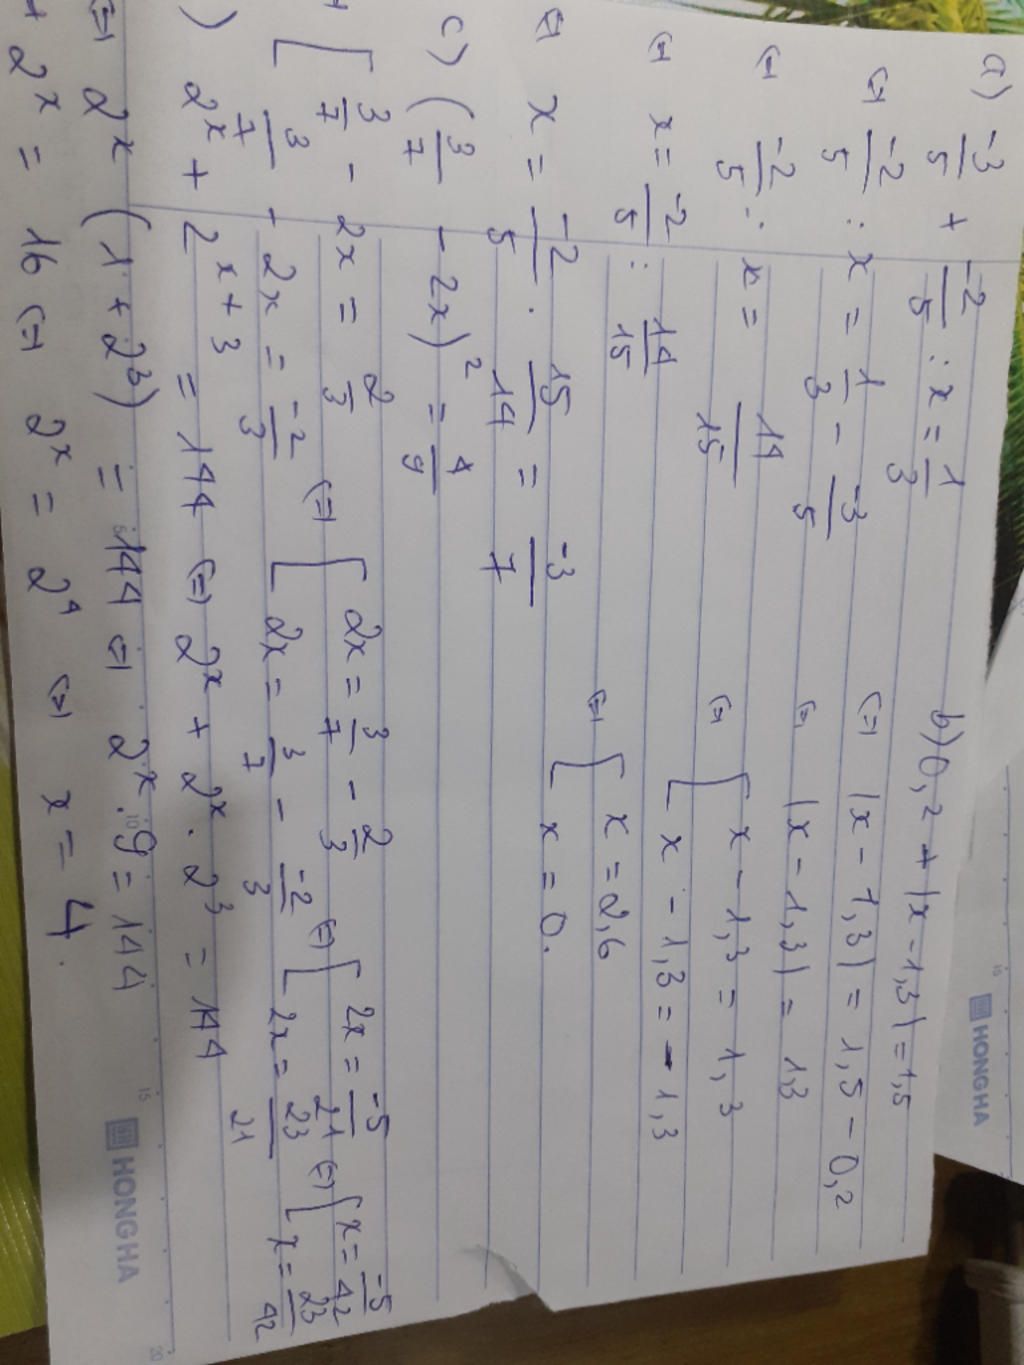 a) -3/5 + -2/5 : x = 1/3
(=) -2/5 : x = 1/3 - -3/5
(=) -2/5 : x = 14/15
(=) x = -2/5 : 14/15
(=) x = -2/5 . 15/14 = -3/7
b) 0,2 + |x - 1,3| = 1,5
(=) |x - 1,3| = 1,5 - 0,2
(=) |x - 1,3| = 1,3
(=) [ x - 1,3 = 1,3
[ x - 1,3 = -1,3
(=) [ x = 2,6
[ x = 0.
c) (3/7 - 2x)² = 4/9
[ 3/7 - 2x = 2/3 (=) [ 2x = 3/7 - 2/3 (=) [ 2x = -5/21 (=) [ x = -5/42
[ 3/7 - 2x = -2/3 [ 2x = 3/7 - -2/3 [ 2x = 23/21 [ x = 23/42
) 2ˣ + 2ˣ⁺³ = 144 (=) 2ˣ + 2ˣ . 2³ = 144
(=) 2ˣ (1 + 2³) = 144 (=) 2ˣ . 9 = 144
2ˣ = 16 (=) 2ˣ = 2⁴ (=) x = 4.
HONGHA
HONGHA